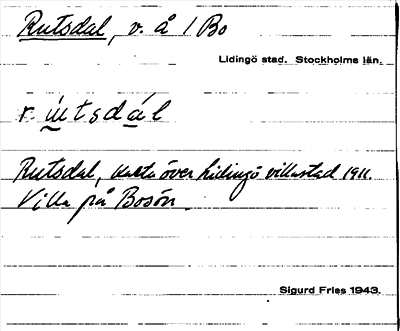 Rutsdal, v. å 1 Bo
Lidingö stad. Stockholms län.
r. ú̱tsdá̱l
Rutsdal, karta över Lidingö villastad 1911.
Villa på Bosön.
Sigurd Fries 1943.